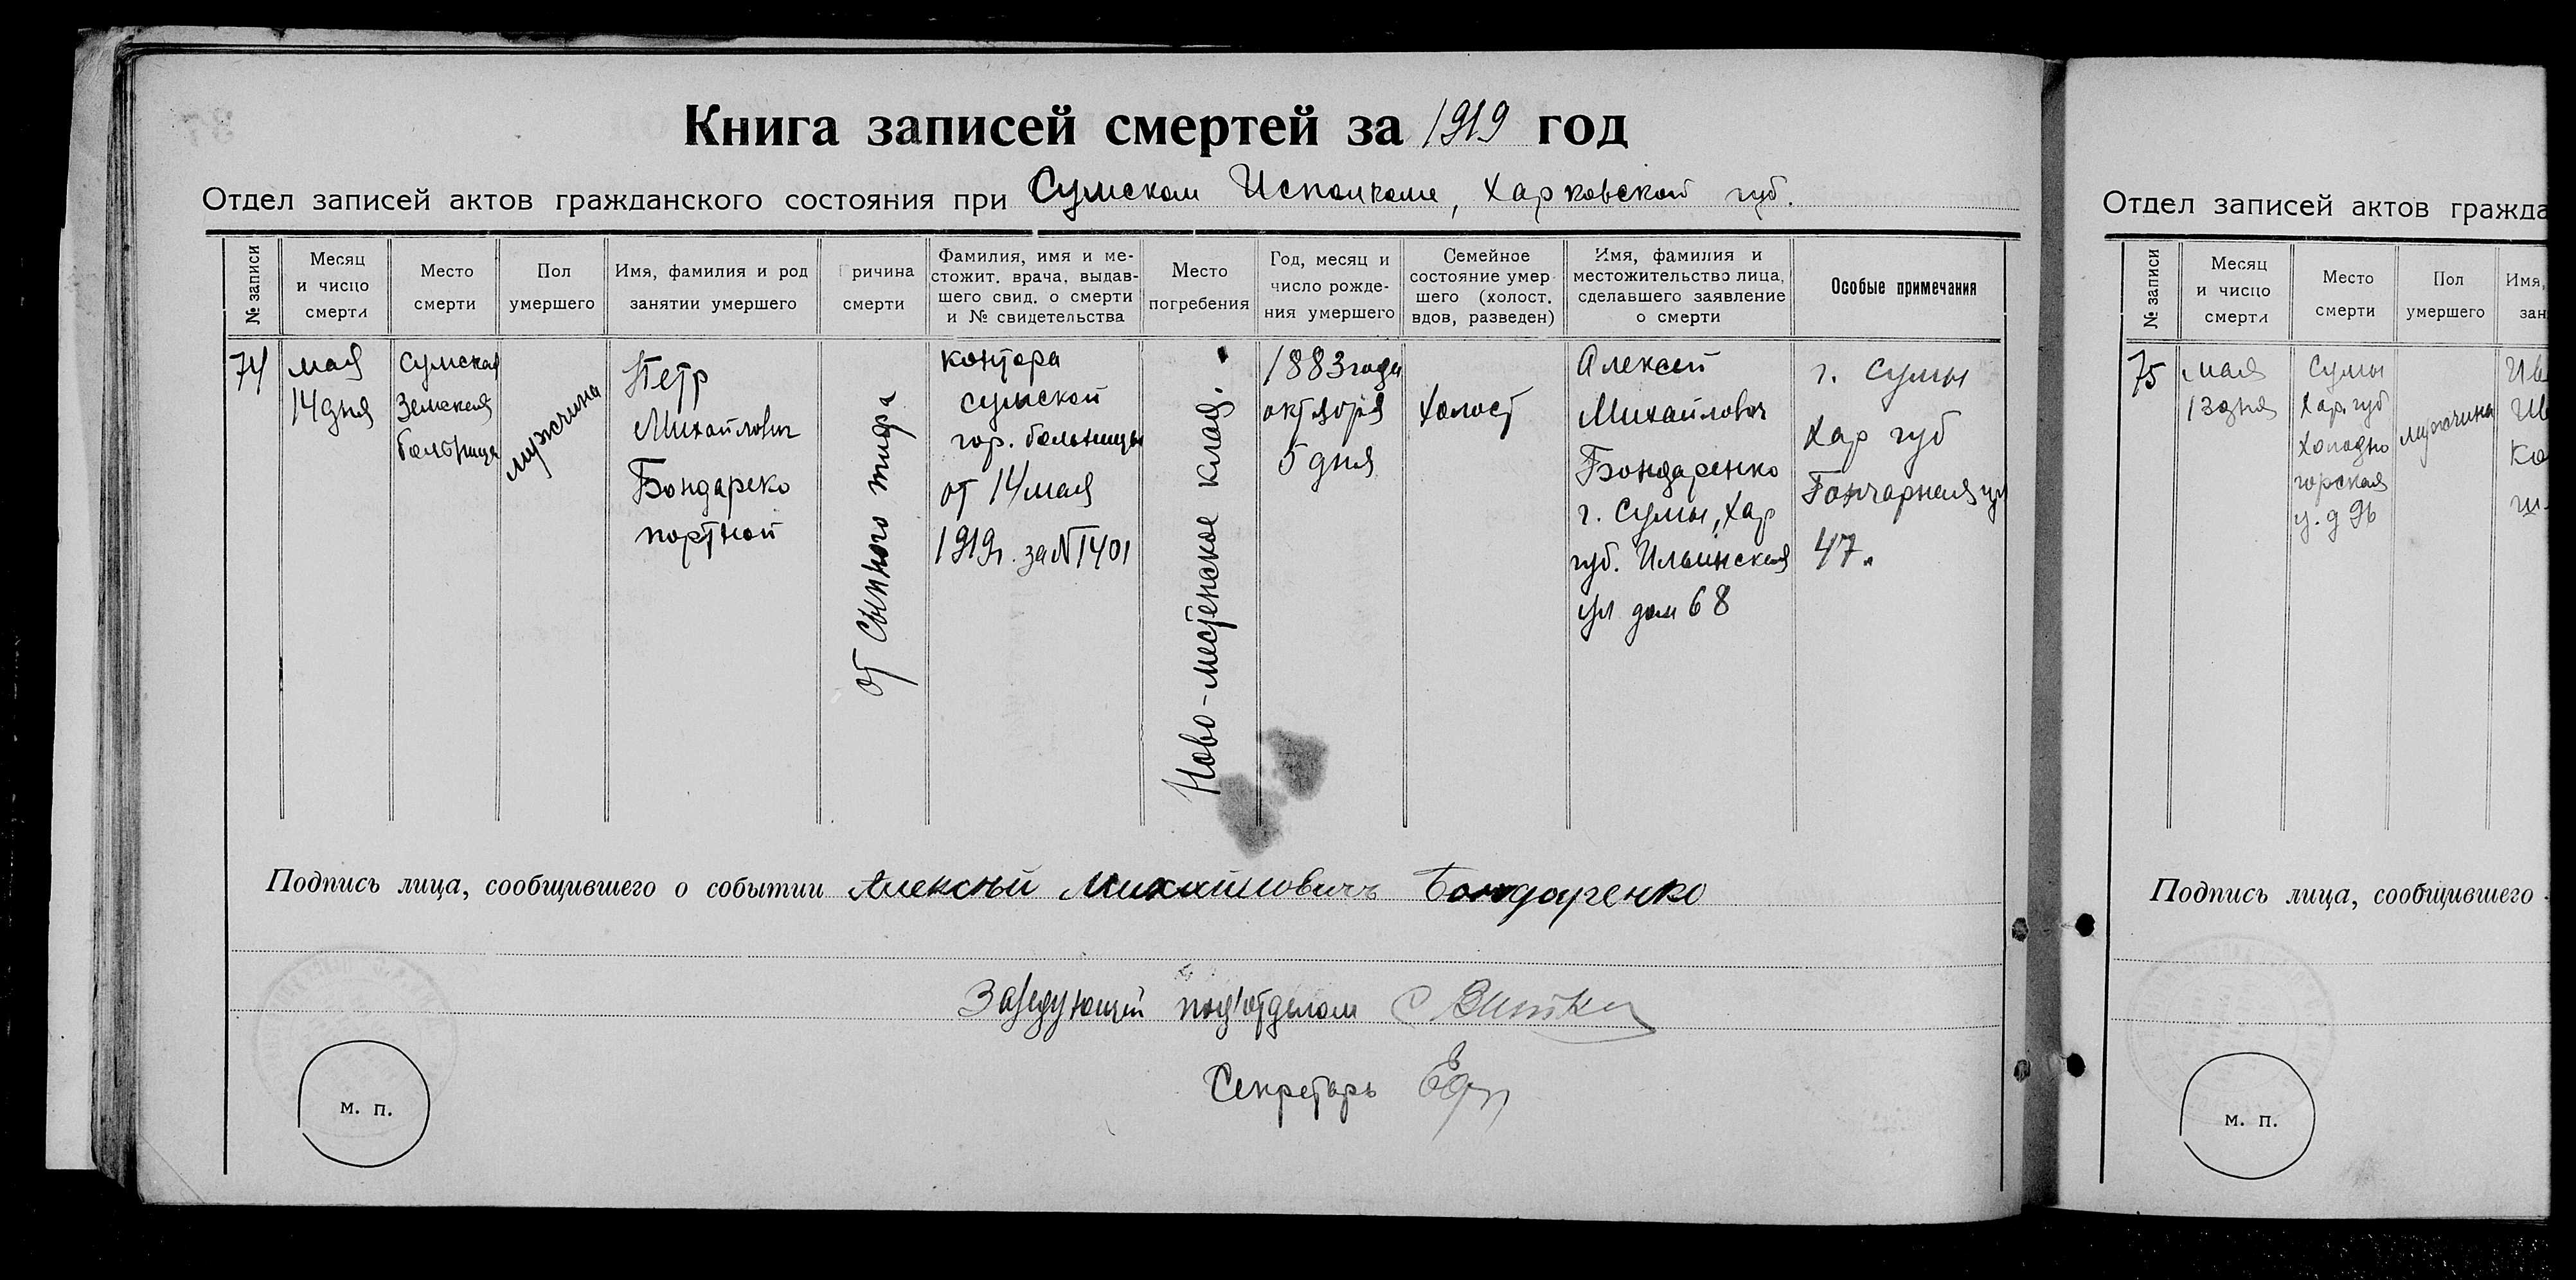 Книга записей смертей за 1919 год
Отдел записей актов гражданского состояния при Сумском Исполкоме, Харковской губ.
№ записи
Месяц
и число
смерти
Место
смерти
Пол
умершего
Имя, фамилия и род
занятии умершего
Причина
смерти
Фамилия, имя и ме-
стожит. врача, выдав-
шего свид. о смерти
и № свидетельства
Место
погребения
Год, месяц и
число рожде-
ния умершего
Семейное
состояние умер-
шего (холост,
вдов, разведен)
Имя, фамилия и
местожительство лица,
сделавшего заявление
о смерти
Особые примечания
74
мая
14 дня
Сумская
Земская
больница
мужчина
Петр
Михайлович
Бондареко
портной
от сыпного тифа
контора
сумской
гор. больницы
от 14 мая
1919г. за № 1401
Ново-местенское клад.
1883 года
октября
5 дня
Холост
Алексей
Михайлович
Бондаренко
г. Сумы, Хар
губ. Ильинская
ул дом 68
г. Сумы
Хар губ
Гончарная ул
47.
Подпись лица, сообщившего о событии Алексѣй Михайловичъ Бондаренко
Заведующий под'отделом
Секретарь
м. п.
Отдел записей актов гражда
№ записи
Месяц
и число
смерти
Место
смерти
Пол
умершего
Имя,
зан
75
мая
13 дня
Сумы
Хар. губ
Холодно
горская
у. д 96
мужчина
Ив
Ко
Подпись лица, сообщившего
м. п.